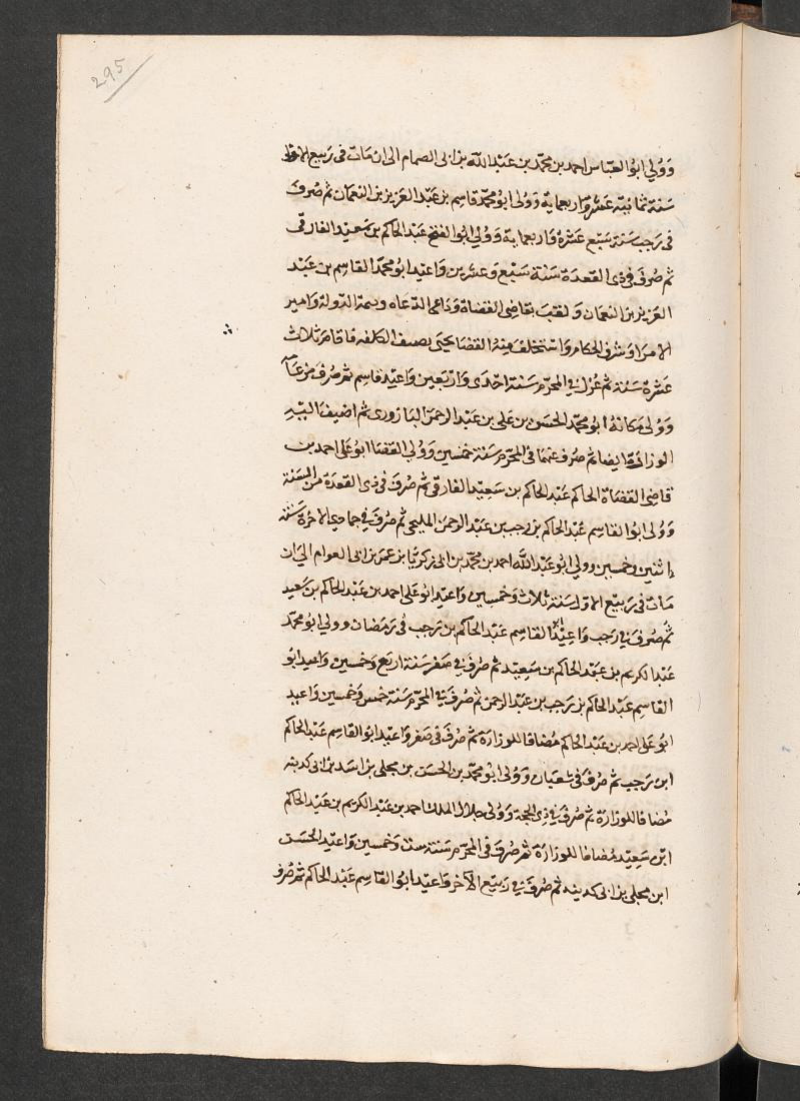 295
وَوُلي ابوُ العبّاس احمد بن محمّد بن عَبْد اللّه بن ابى الصمام الى ان مَات فى رَبيع الاول
سَنة ثمانيَة عَشر وَاربعماية وَوُلى ابوُ محمّد قاسِم بن عَبْد العَزيز بن النعمَان ثم صُرفَ
فى رَجب سَنة سَبْع عَشرة وَاربعماية وَوُلي ابوا الفتح عَبْد الحاكم بن سَعيْد الفارقى
ثم صُرفَ فى ذى القعدَة سَنَة سَبْع وَعشرين وَاعيْد ابو محمّد القاسِم بن عَبْد
العَزيز بن النعمان وَلقبَ بقاضِى القضاة وَدَاعى الدعاه وثقة الدّولة وَامير
الامرَا وَشرف الحكام وَاسْتخلف مِنهُ القضا يحيَى فاقامَ ثلاث
عَشرة سَنة ثم عُزل فى المحرّم سَنة احْدَى وَارْبَعين وَاعيْد قاسِم ثم صُرف
وَوُلى مَكانهُ ابوُ محمّد الحسَن بن عَلى بن عَبْد الرحمَن اليازورى ثم اضيف اليْهِ
الوزارَة ايضا ثم صُرف عنهمَا فى المحرّم سَنة خمْسين وَوُلي القضَا ابوُ عَلى احمد بن
قاضِى القضَاة الحاكم عَبْد الحاكم بن سَعيْد الفارقى ثم صُرفَ فى ذى القعدَة من السَنة
وَوُلى ابوُا القاسِم عَبْد الحاكم بن وَهيب بن عَبْد الرحمَن المليجى ثم صُرفَ فى جمادى الاخرة سَنَة
اثنين وَخمسين وولي ابوُ عَبْد اللّه احمد بن محمّد بن ابى زكريّا بن عمر بن ابى العوام الى ان
مَات فى رَبيْع الاوّل سَنة ثلاث وَخمْسين وَاعيْد ابوُ عَلى احمد بن عَبْد الحاكم بن سَعيد
ثم صُرفَ فى رَجب وَاعِيْد ابو القاسِم عَبْد الحاكم بن رَجب فى رَمَضان وولي ابوُ محمّد
عَبْد الكريم بن عَبْد الحاكم بن سَعِيْد ثم صُرفَ فى صَفر سَنة اربَع وَخمْسين وَاعيد ابوُ
القاسِم عَبْد الحاكم بن رَجب بن عَبْد الرحمن ثم صُرفَ فى المحرّم سَنة خمس وَخمْسين وَاعيد
ابوُ عَلى احمد بن عَبْد الحاكم مُضافا للوزارَة ثم صُرفَ فى صَفر وَاعيْد ابوُ القاسِم عَبْد الحاكم
ابن رَجب ثم صُرفَ فى شعبَان وَوُلى ابوُ محمّد بن الحسَن بن مجلى بن اسَد بن ابى كدينه
مُضافا للوزارَة ثم صُرفَ فى ذى الحجة وَوُلى جلال الملك احمد بن عَبْد الكريم بن عَبْد الحاكم
ابن سَعِيْد مُضافا للوزارَة ثم صُرفَ فى المحرّم سَنَة ست وَخمسين وَاعيْد الحسَن
ابن مجلى بن ابى كدينه ثم صُرفَ فى رَبيْع الآخر فاعيْد ابوُ القاسِم عَبْد الحاكم ثم صُرف